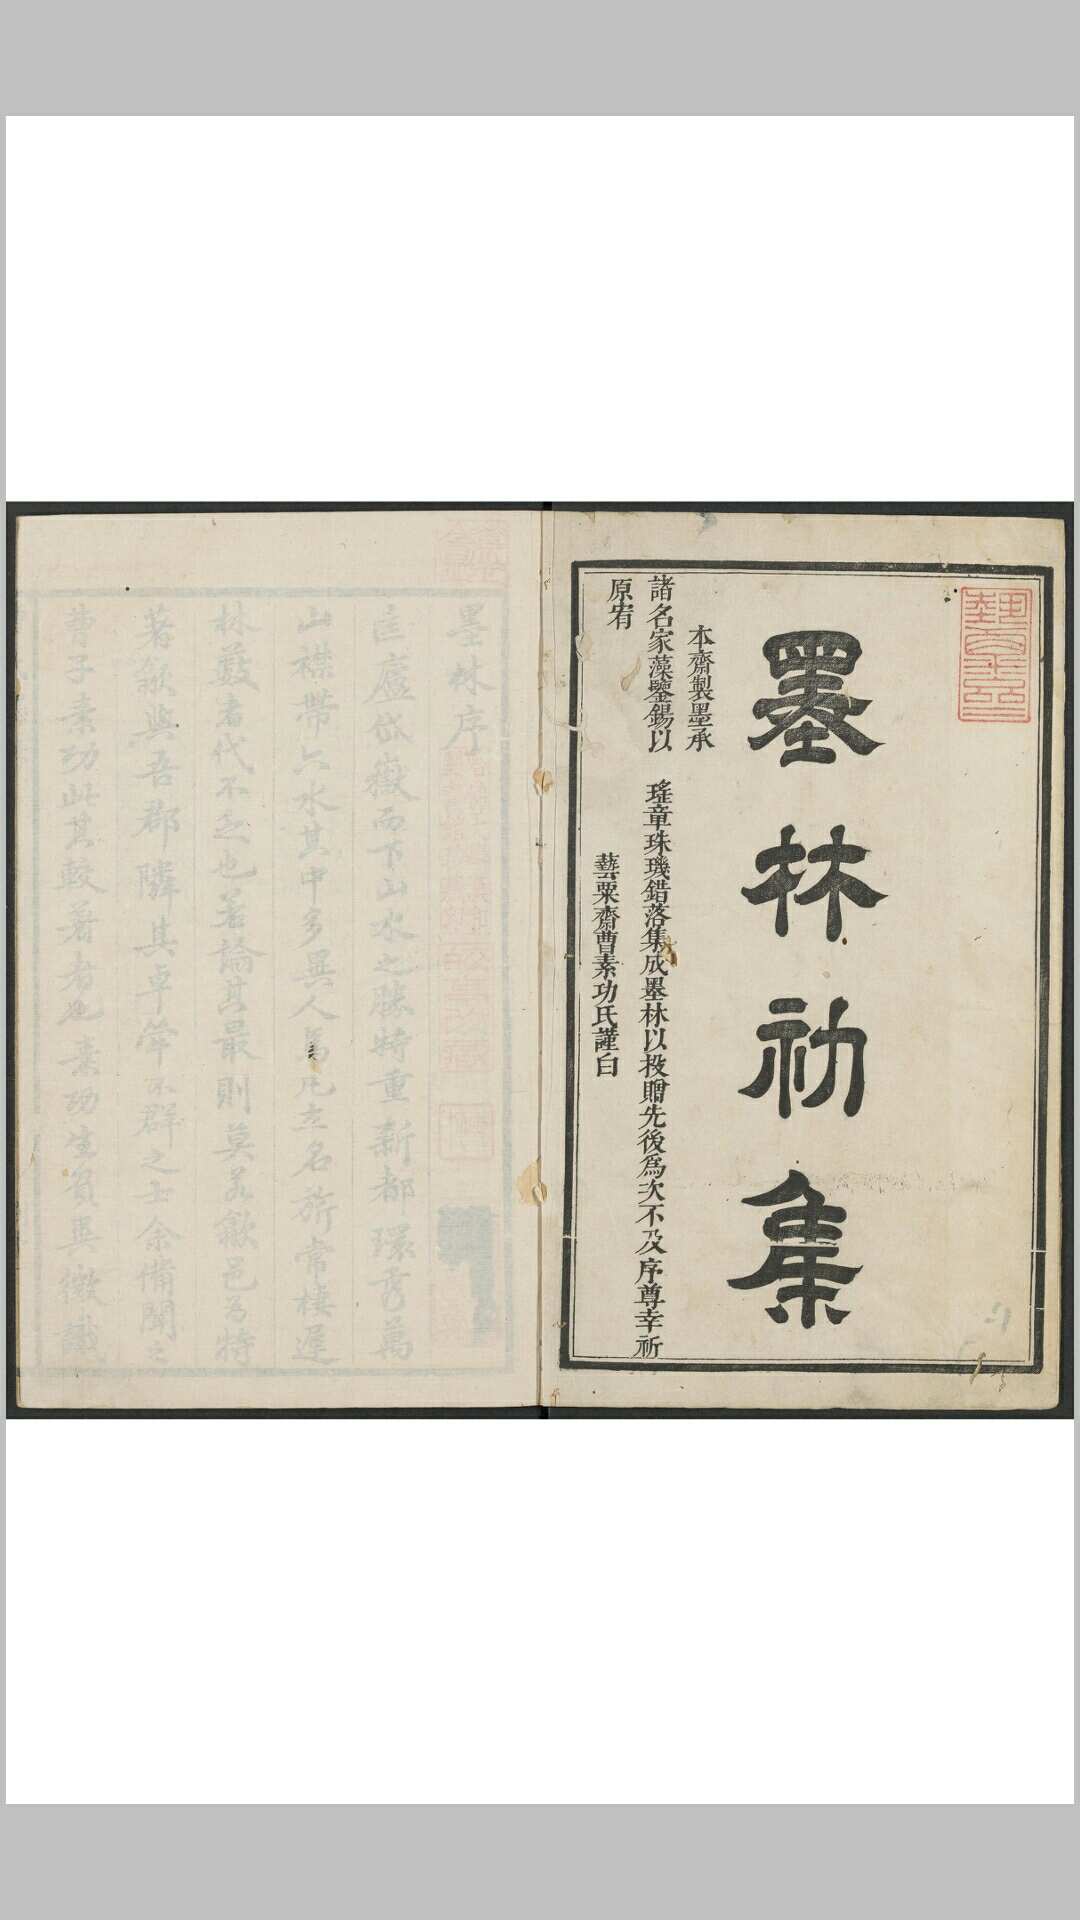 墨林初集
本齋製墨承
諸名家藻鑒錫以
瑤章珠璣錯落集成墨林以投贈先後為次不及序尊幸祈
原宥
藝粟齋曹素功氏謹白
墨林序
匡廬岱嶽而下山水之勝特重新都環秀萬
山襟帶六水其中多異人焉凡立名旂常棲遲
林藪者代不乏也若論其最則莫若歙邑為特
著歙與吾郡隣其卓犖不群之士余備聞之
曹子素功此其較著者也素功生負異徵識